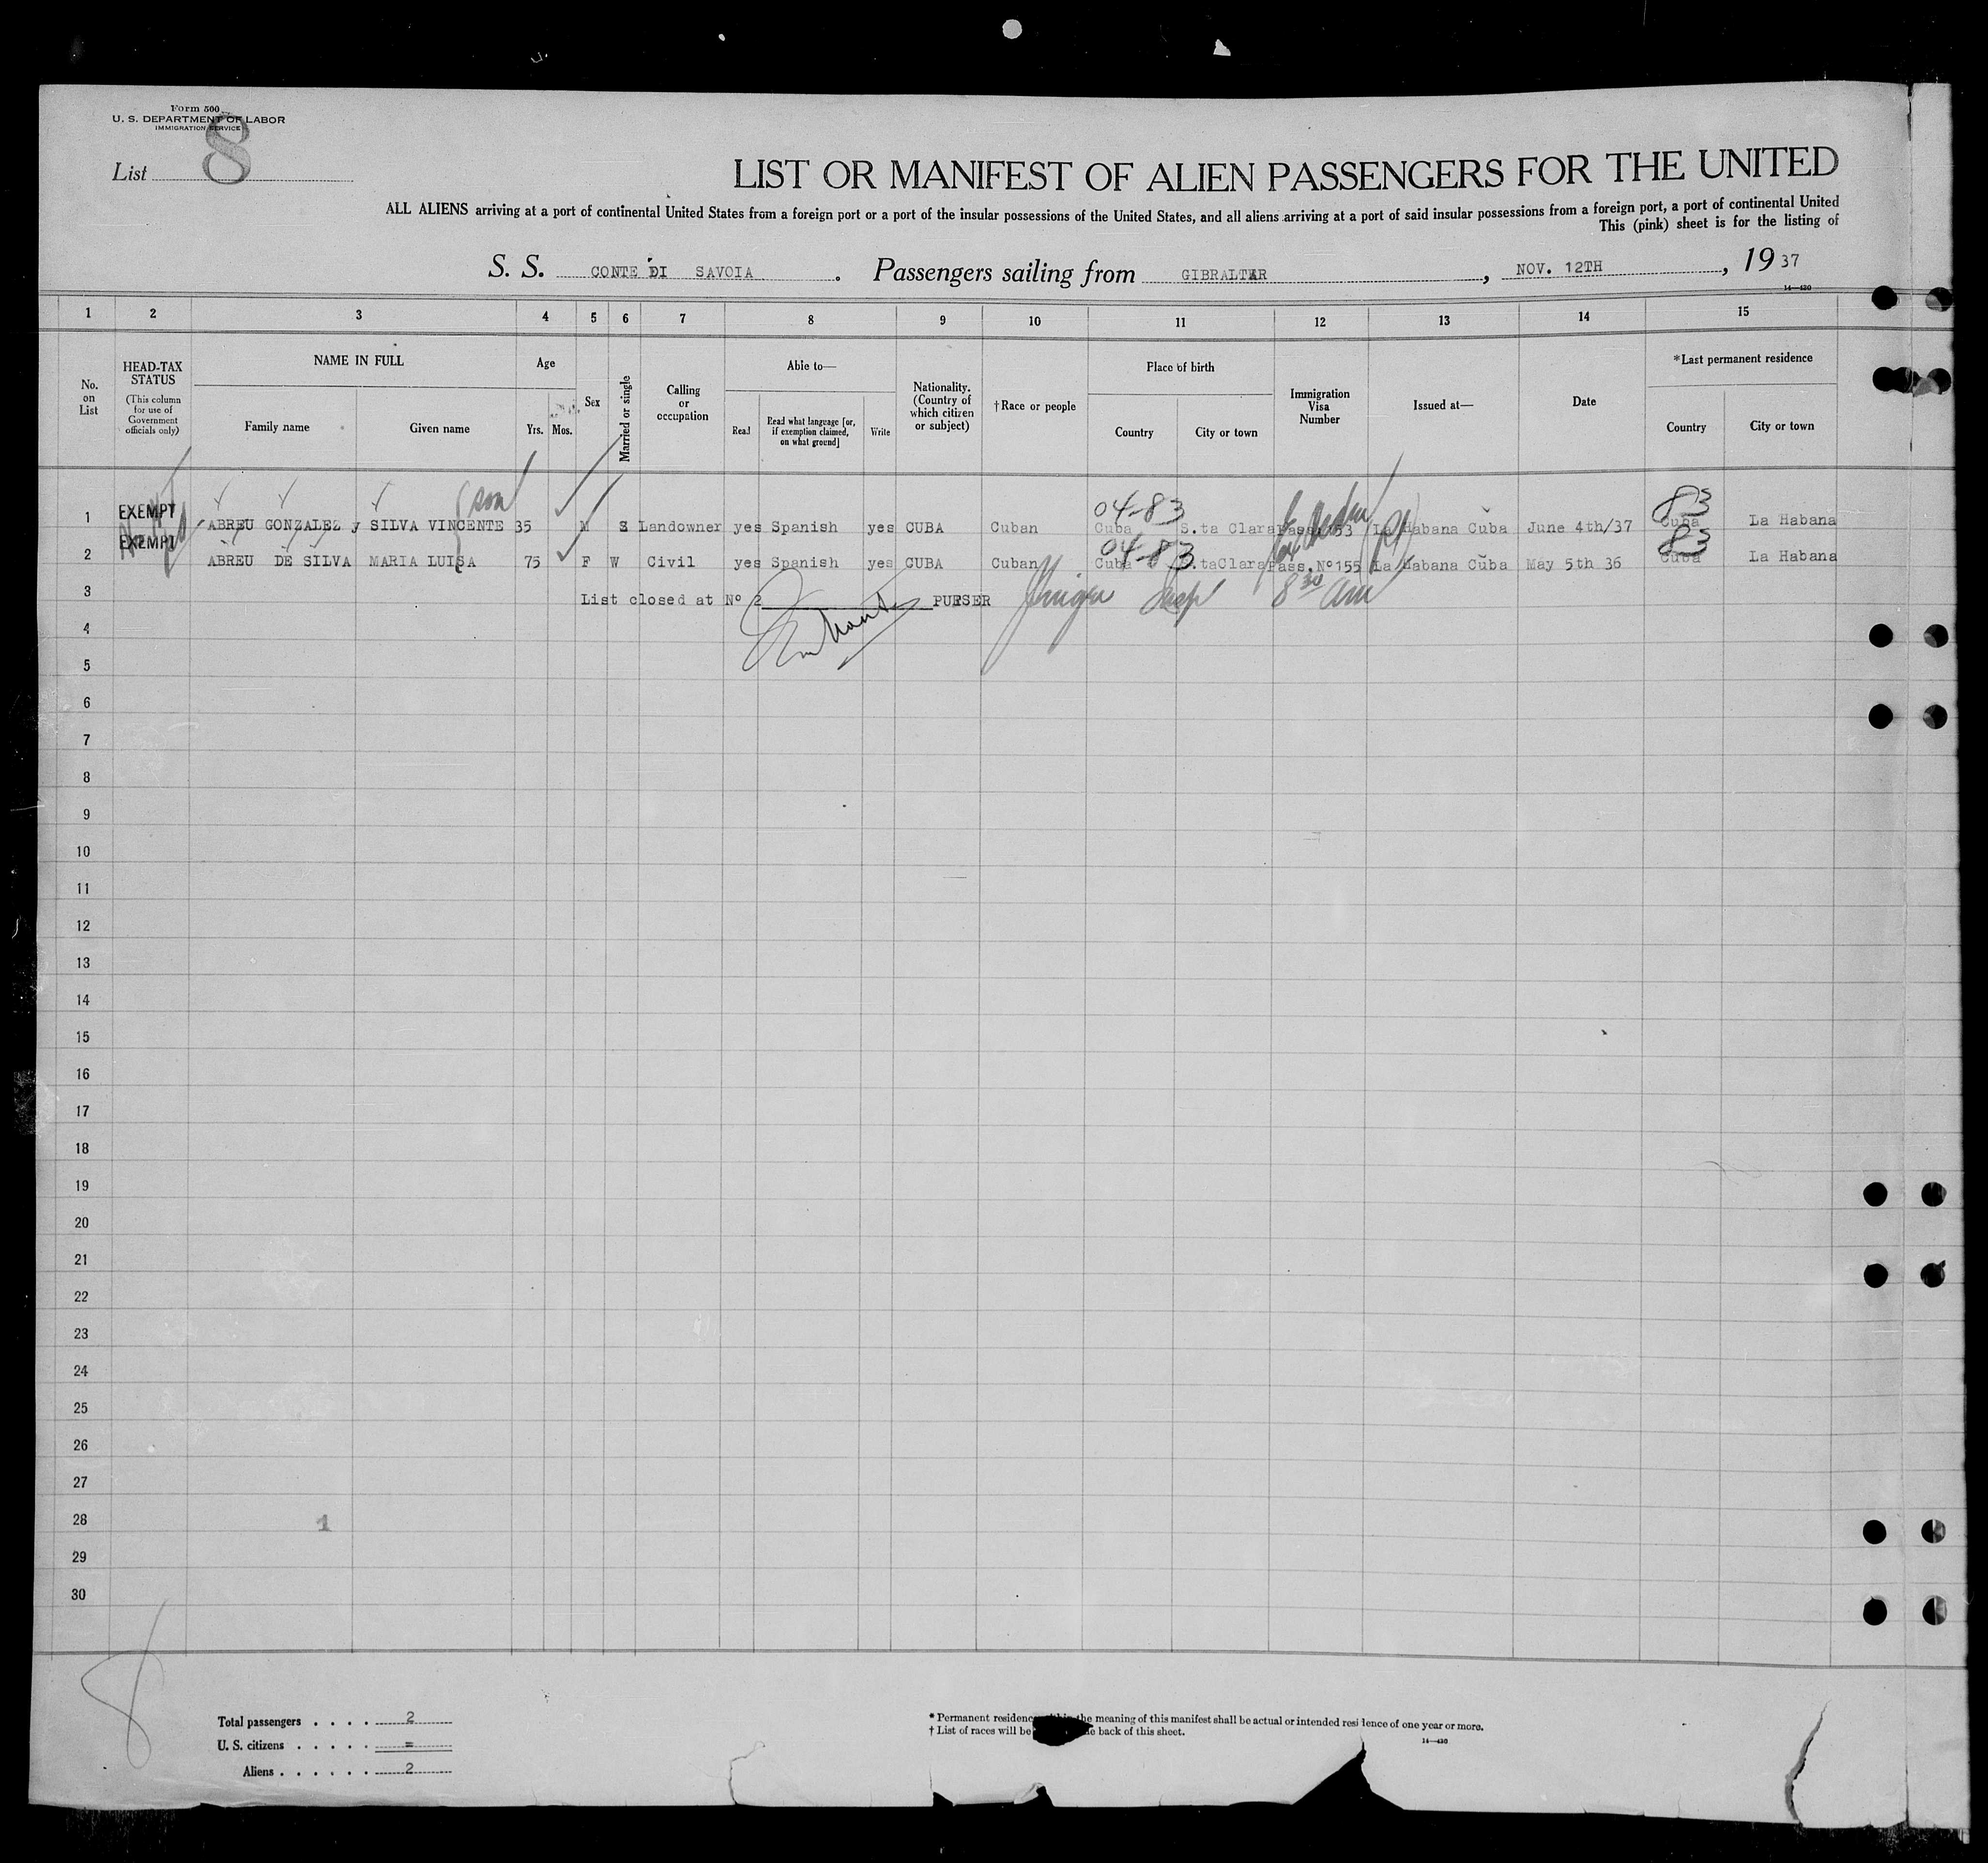 Form 500
U. S. DEPARTMENT OF LABOR
IMMIGRATION SERVICE
List 8
LIST OR MANIFEST OF ALIEN PASSENGERS FOR THE UNITED
ALL ALIENS arriving at a port of continental United States from a foreign port or a port of the insular possessions of the United States, and all aliens arriving at a port of said insular possessions from a foreign port, a port of continental United
This (pink) sheet is for the listing of
S. S. CONTE DI SAVOIA. Passengers sailing from GIBRALTAR, NOV. 12TH, 1937
14—430
1 2 3 4 5 6 7 8 9 10 11 12 13 14 15
No. on List
HEAD-TAX STATUS
(This column for use of Government officials only)
NAME IN FULL
Family name Given name
Age
Yrs. Mos.
Sex
Married or single
Calling or occupation
Able to—
Read
Read what language [or, if exemption claimed, on what ground]
Write
Nationality. (Country of which citizen or subject)
†Race or people
Place of birth
Country City or town
Immigration Visa Number
Issued at—
Date
*Last permanent residence
Country City or town
son
04-83 83
1 EXEMPT ABREU GONZALEZ y SILVA VINCENTE 35 M S Landowner yes Spanish yes CUBA Cuban Cuba S.ta Clara Pass. 153 La Habana Cuba June 4th/37 Cuba La Habana
04-83 83
2 EXEMPT ABREU DE SILVA MARIA LUISA 75 F W Civil yes Spanish yes CUBA Cuban Cuba S.taClara Pass. Nº155 La Habana Cuba May 5th 36 Cuba La Habana
3 List closed at Nº 2 PURSER Insp 8 30 am
4
5
6
7
8
9
10
11
12
13
14
15
16
17
18
19
20
21
22
23
24
25
26
27
28 1
29
30
8
Total passengers . . . . 2
U. S. citizens . . . . . =
Aliens . . . . . . 2
* Permanent residence within the meaning of this manifest shall be actual or intended residence of one year or more.
† List of races will be back of this sheet.
14—430